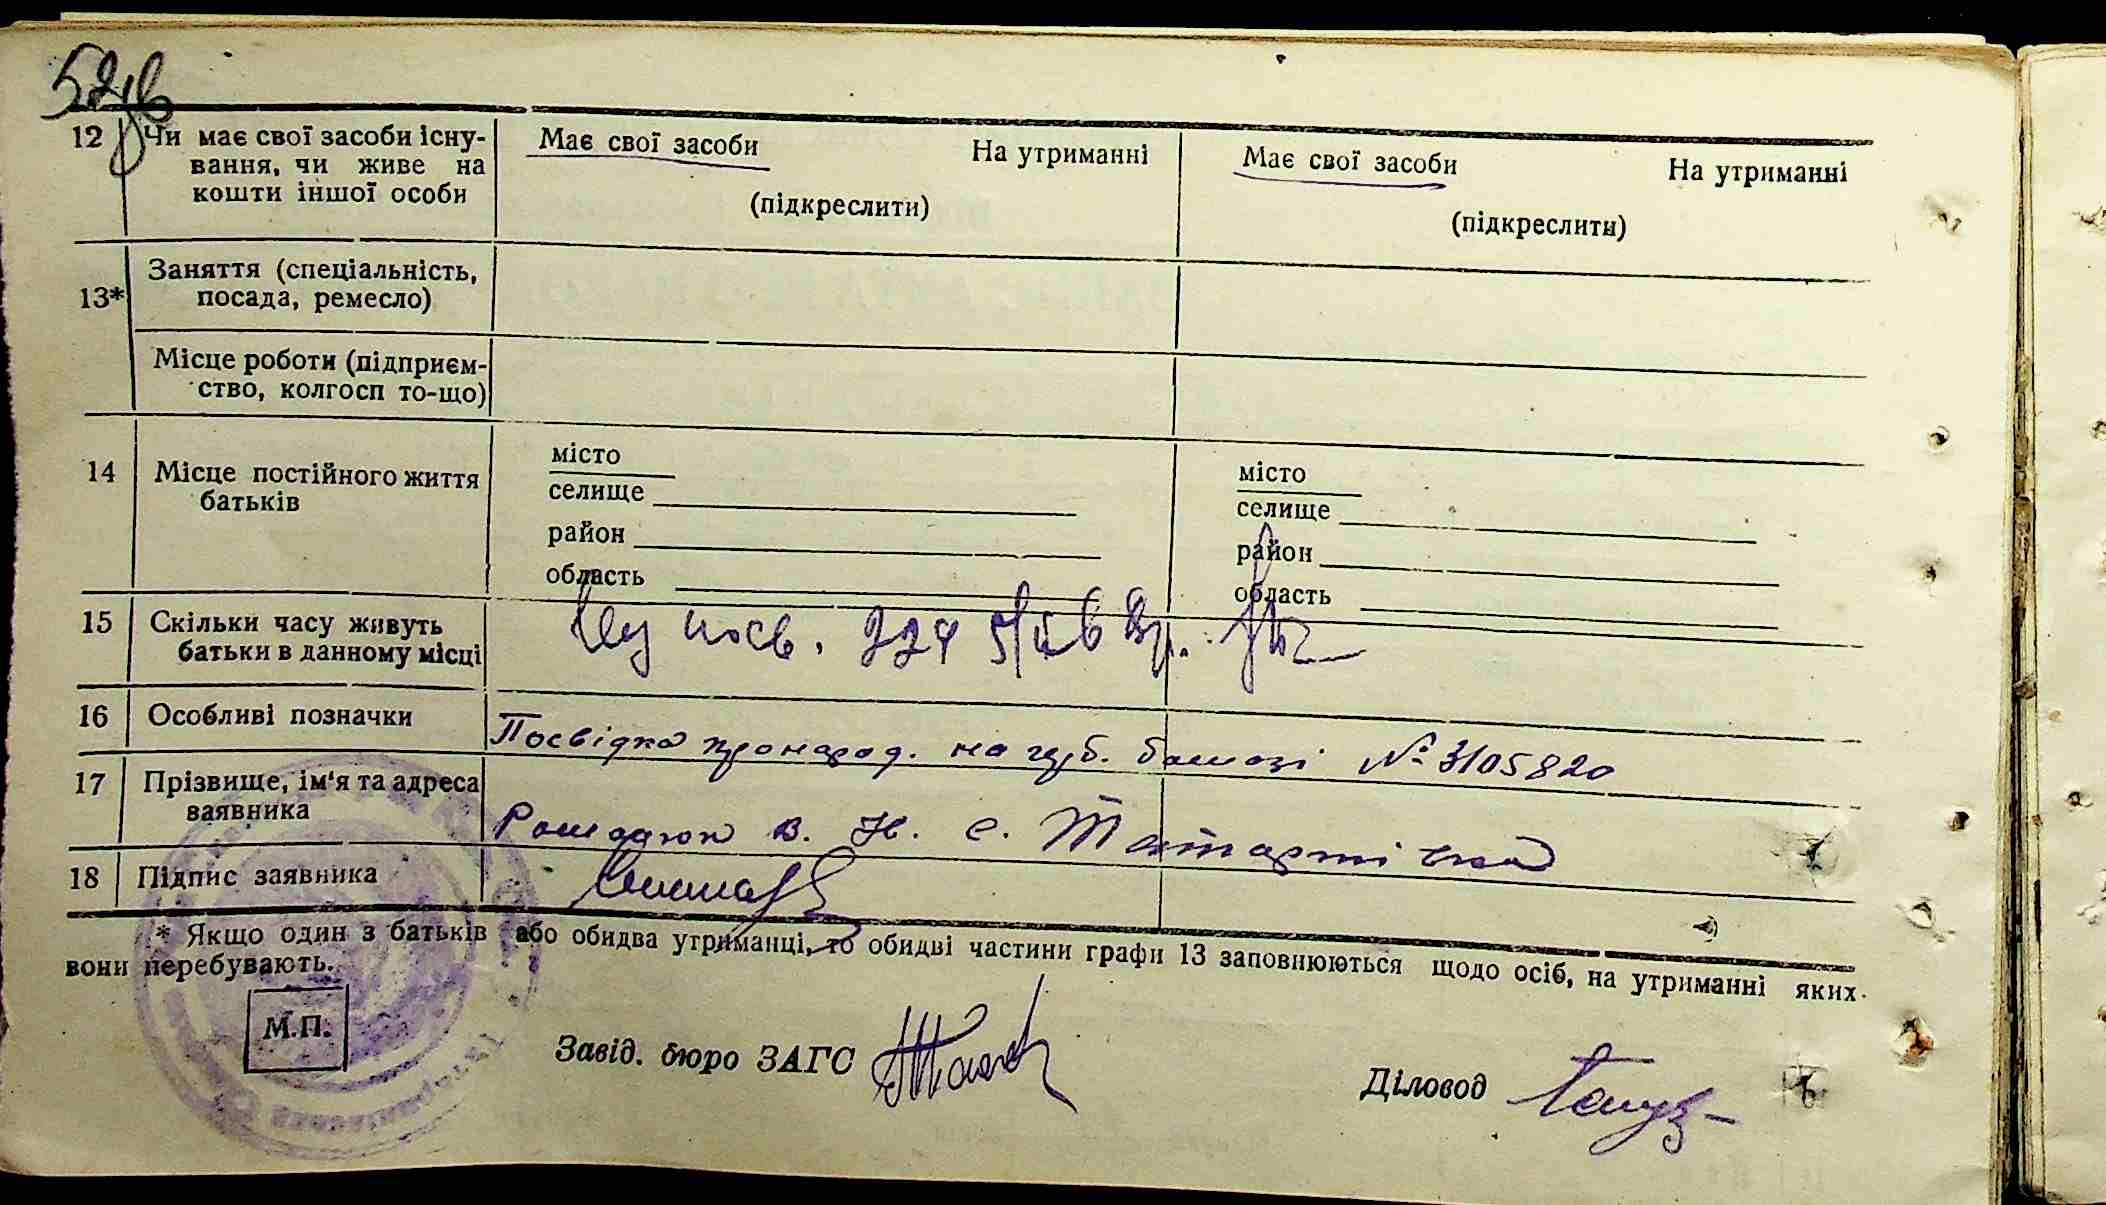 12 Чи має свої засоби існу-
вання, чи живе на
кошти іншої особи
Має свої засоби На утриманні
(підкреслити)
Має свої засоби На утриманні
(підкреслити)
13* Заняття (спеціальність,
посада, ремесло)
Місце роботи (підприєм-
ство, колгосп то-що)
14 Місце постійного життя
батьків
місто
селище
район
область
місто
селище
район
область
15 Скільки часу живуть
батьки в данному місці
посв. 224
16 Особливі позначки
Посвідка про народ. на руб. бамазі № 3105820
17 Прізвище, ім'я та адреса
заявника
В. Н. с.
18 Підпис заявника
* Якщо один з батьків або обидва утриманці, то обидві частини графи 13 заповнюються щодо осіб, на утриманні яких
вони перебувають.
М.П.
Завід. бюро ЗАГС
Діловод